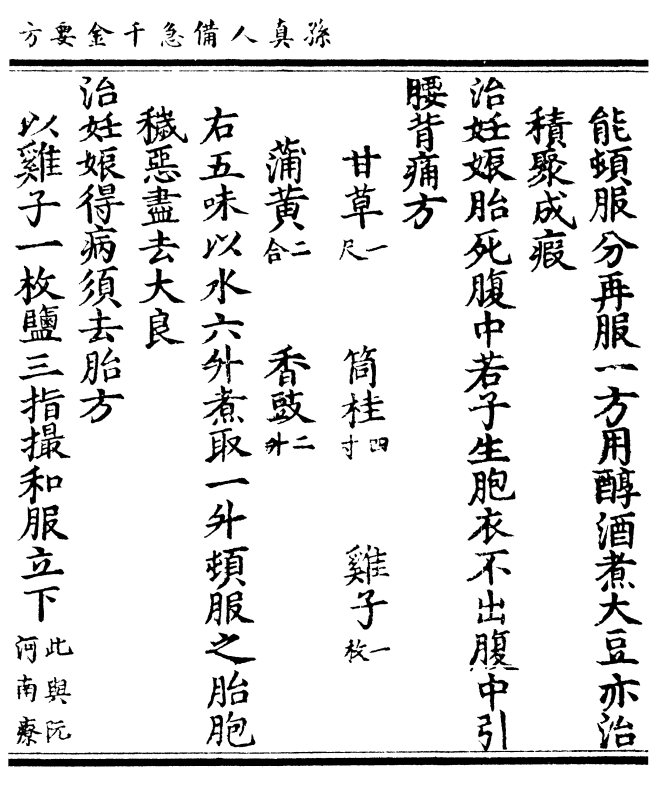 孫真人備急千金要方
能頓服分再服一方用醇酒煮大豆亦治
積聚成瘕
治妊娠胎死腹中若子生胞衣不出腹中引
腰背痛方
甘草一尺 筒桂四寸 雞子一枚
蒲黄二合 香豉二升
右五味以水六升煮取一升頓服之胎胞
穢惡盡去大良
治妊娠得病須去胎方
以雞子一枚鹽三指撮和服立下此與阮河南療